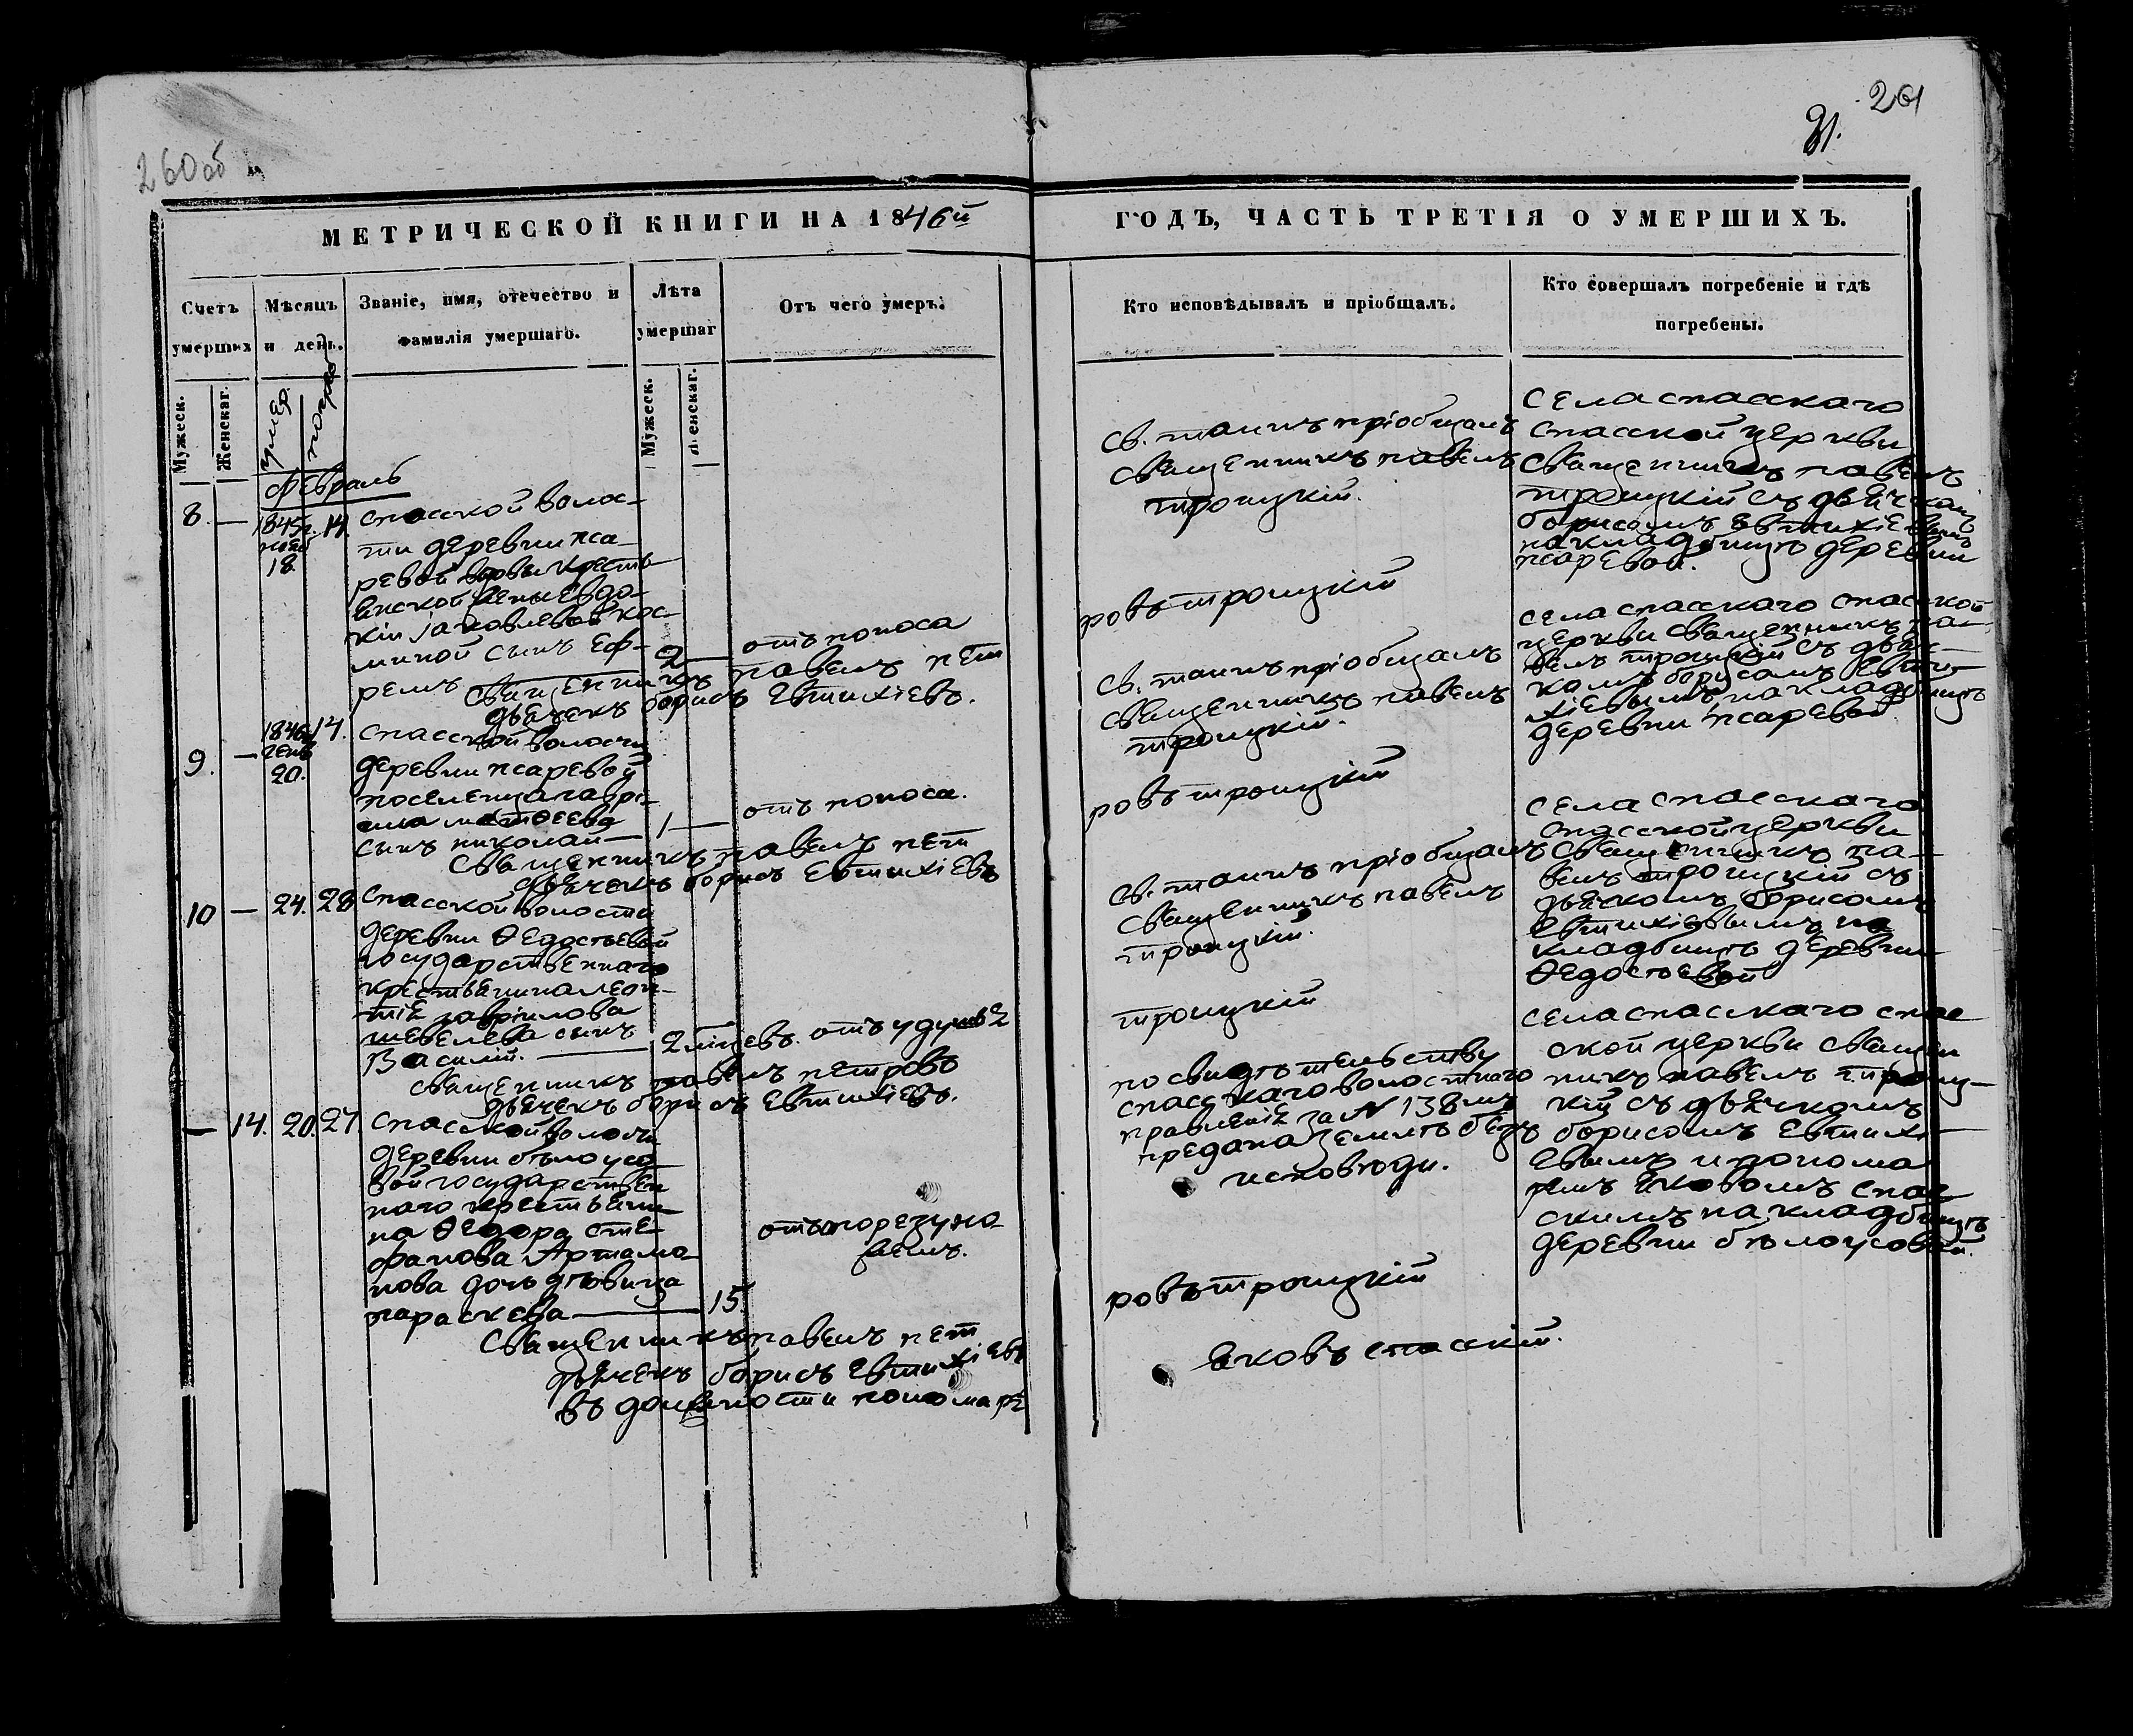 260об
261
91.
МЕТРИЧЕСКОЙ КНИГИ НА 1846й
ГОДЪ, ЧАСТЬ ТРЕТІЯ О УМЕРШИХЪ.
Счетъ умерших
Мѣсяцъ и день.
Званіе, имя, отечество и
фамилія умершаго.
Лѣта
умершаг
Отъ чего умеръ.
Кто исповѣдывалъ и пріобщалъ.
Кто совершалъ погребеніе и гдѣ
погребены.
Мужеск.
Женскаг.
умер.
погреб
Мужеск.
Женскаг.
Февраль
8. — 1845г. 14.
нояб
18.
спасской волос-
ти деревни пса-
ревой вдовы кресть
янской жены Евдо-
кіи Іаковлевой кос-
миной сынъ Еф-
ремъ 2 — отъ поноса
священникъ павелъ пет
дьячекъ борисъ Евтихіевъ.
св. таинъ пріобщалъ
священникъ павелъ
троицкій.
ровъ троицкій
села спасскаго
спасской церкви
священникъ павелъ
троицкій съ дьячкомъ
борисомъ Евтихіевымъ
на кладбищѣ деревни
псаревой.
9. — 1846г. 14.
генв
20.
спасской волости
деревни псаревой
поселенца гаври-
ила матѳеева
сынъ николай — 1 — отъ поноса.
священникъ павелъ пет
дьячекъ борисъ Евтихіевъ
св. таинъ пріобщалъ
священникъ павелъ
троицкій.
ровъ троицкій
села спасскаго спасской
церкви священникъ па-
велъ троицкій съ дьяч-
комъ борисомъ Евти-
хіевымъ на кладбищѣ
деревни псаревой
10 — 24. 28
спасской волости
деревни Ѳедостьевой
государственнаго
крестьянина леон-
тія гавріилова
шевелева сынъ
Василій. — 2 місцевъ. отъ удушья
священникъ павелъ петровъ
дьячекъ борисъ Евтихіевъ.
св. таинъ пріобщалъ
священникъ павелъ
троицкій.
троицкій
села спасскаго
спасской церкви
священникъ па-
велъ троицкій съ
дьячкомъ борисомъ
Евтихіевымъ на
кладбищѣ деревни
Ѳедостьевой
— 14. 20. 27.
спасской волости
деревни бѣлоусо
вой государствен
наго крестьяни
на Ѳедора сте-
фанова Артамо-
нова дочь дѣвица
параскева — 15.
священникъ павелъ пет
дьячекъ борисъ Евтихіевъ
въ должности пономаря
по свидѣтельству
спасскаго волостнаго
правленія за № 138мъ
предана землѣ безъ
исповѣди.
ровъ троицкій
Яковъ спасскій.
села спасскаго спас
ской церкви священ
никъ павелъ троиц-
кій съ дьячкомъ
борисомъ Евтихі-
евымъ и понома
ремъ Яковомъ спас
скимъ на кладбищѣ
деревни бѣлоусовой.